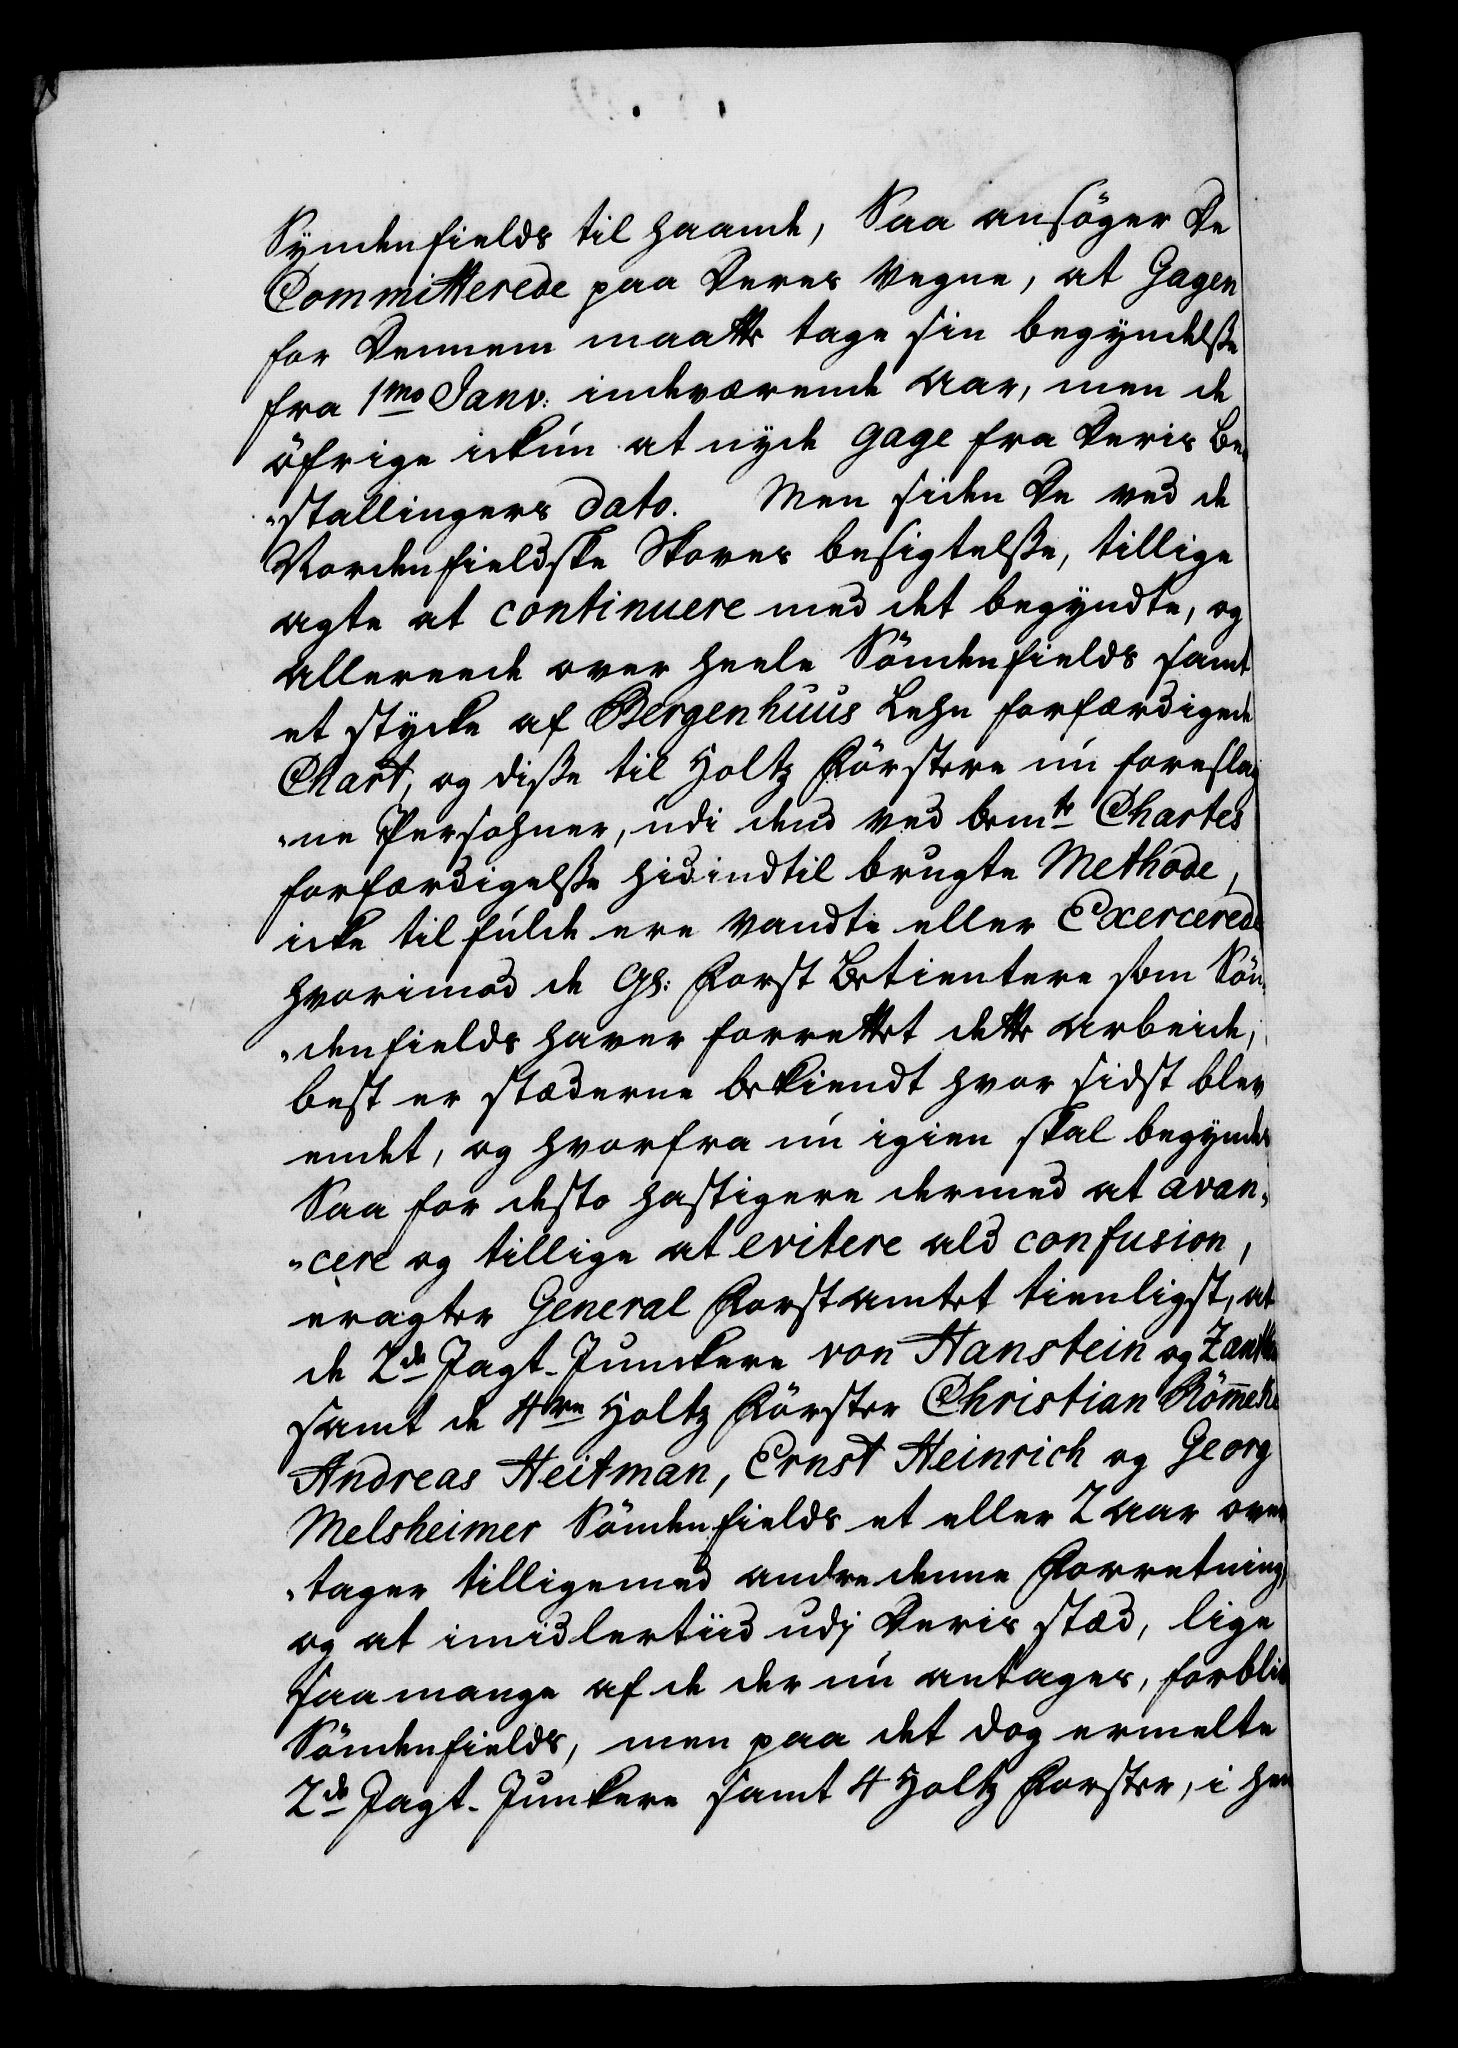 Syndenfields til haande, Saa ansöger De
Committerede paa Deres Vegne, at Gagen
for Dennem maatte tage sin begyndelße
fra 1mo Janv: indeværende Aar, men de
öfrige ickun at nyde gage fra Deris Be
"stallingers dato. Men siden De ved de
Nordenfieldske Skoves besigtelße, tillige
agte at continuere med det begyndte, og
allereede over heele Söndenfields samt
et stycke af Bergenhuus Lehn forfærdigede
Chart, og diße til Holtz Förstere nu foreslag
"ne Persohner, udi dend ved bemte Chartes
forfærdigelße hidindtil brugte Methode,
icke tilfulde ere vandte eller Exercerede
hvorimod de Gl: Forst Betientere som Sön
"denfields haver forrettet dette Arbeide,
best er stæderne bekiendt hvor sidst blev
endet, og hvorfra nu igien skal begyndes
Saa for desto hastigere dermed at avan"
"cere og tillige at evitere ald confusion,
eragter General Forstamtet tienligst, at
de 2de Jagt-Junckere von Hanstein og
samt de 4re Holtz Förster Christian Römcke
Andreas Heitman, Ernst Heinrich og Georg
Melsheimer Söndenfields et eller 2 Aar over
"tager tilligemed andre denne Forretning,
og at imidlertiid udj Deris stæd, lige
saa mange af de der nu antages, forblive
Söndenfields, men paa det dog ermelte
2de Jagt-Junkere samt 4 Holtz Forster, i hen